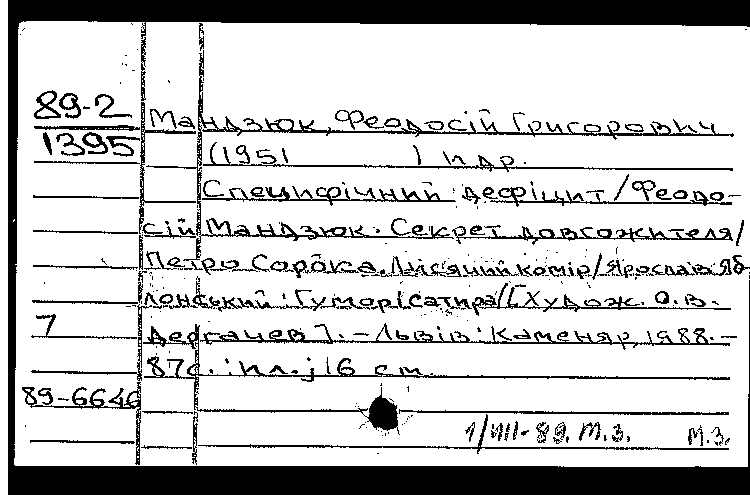 89-2
1395
Мандзюк, Феодосій Григорович
(1951 ) и др.
Специфічний дефіцит / Феодо-
сій Мандзюк. Секрет довгожителя /
Петро Сорока. Лисячий комір / Ярослав Яб
лонський : Гумор і сатира / [Худож. О.В.
7
Дергачев]. - Львів : Каменяр, 1988. -
87с. : ил. ; 16 см.
89-6646
1/VIII-89. М.З. М.З.